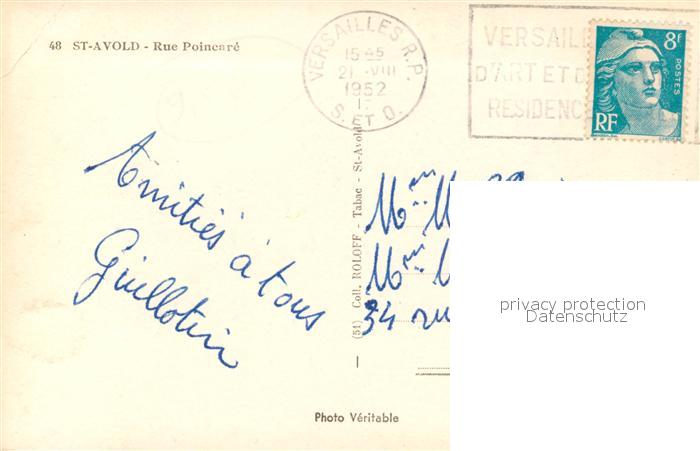 48 ST-AVOLD - Rue Poincaré
VERSAILLES R.P.
15 45
21 -VIII
1952
S. ET O.
VERSAILLE
D'ART ET D
RESIDENC
8f
POSTES
RF
Amitiés à tous
Guillotin
(54) Coll. ROLOFF - Tabac - St-Avold
Mme M
Mme
34 rue
privacy protection
Datenschutz
Photo Véritable